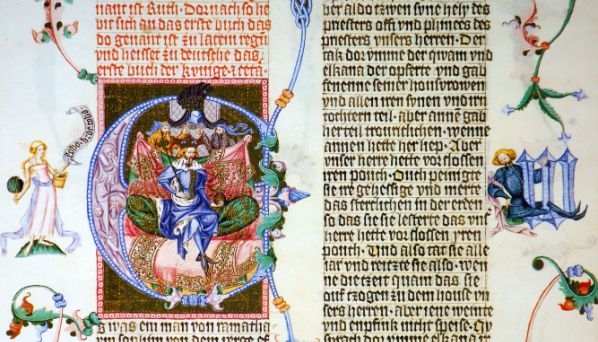 nant ist Ruth · Dornach so he
bit sich an das erste buch das
do genant ist zu latein regū
und heisset zu deutsche das
erste buch der kunige · et cetera ·
s was ein man von ramatha
ym sophim von dem perge ef
ber aldo czwen syne hely des
priesters offni und phinees des
priesters unsers herren · Der
tak dor vmme der qwam und
elkana der opferte und gab
fenenne seiner housvrowen
und allen iren synen und irē
tochtern teil · aber anne gab
her teil trouriclichen · wenne
annen hette her liep · Aber
unser herre hette vorslossen
iren pouch · Ouch peinigte
sie ire gehessige und merte
das sterclichen in der erden
so das sie sie lesterte das uns
herre hette vorslossen yren
pouch · Und also tat sie alle
iar und reiczte sie also · wen
ne die czeit quam das sie
ouf czogen zu dem house un
sers herren · aber iene weinte
und enpfink nicht speise · Sy
sprach dor vmme elkana ir